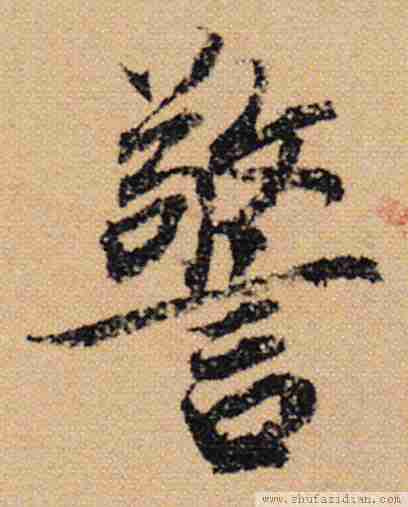 警
www.shufazidian.com